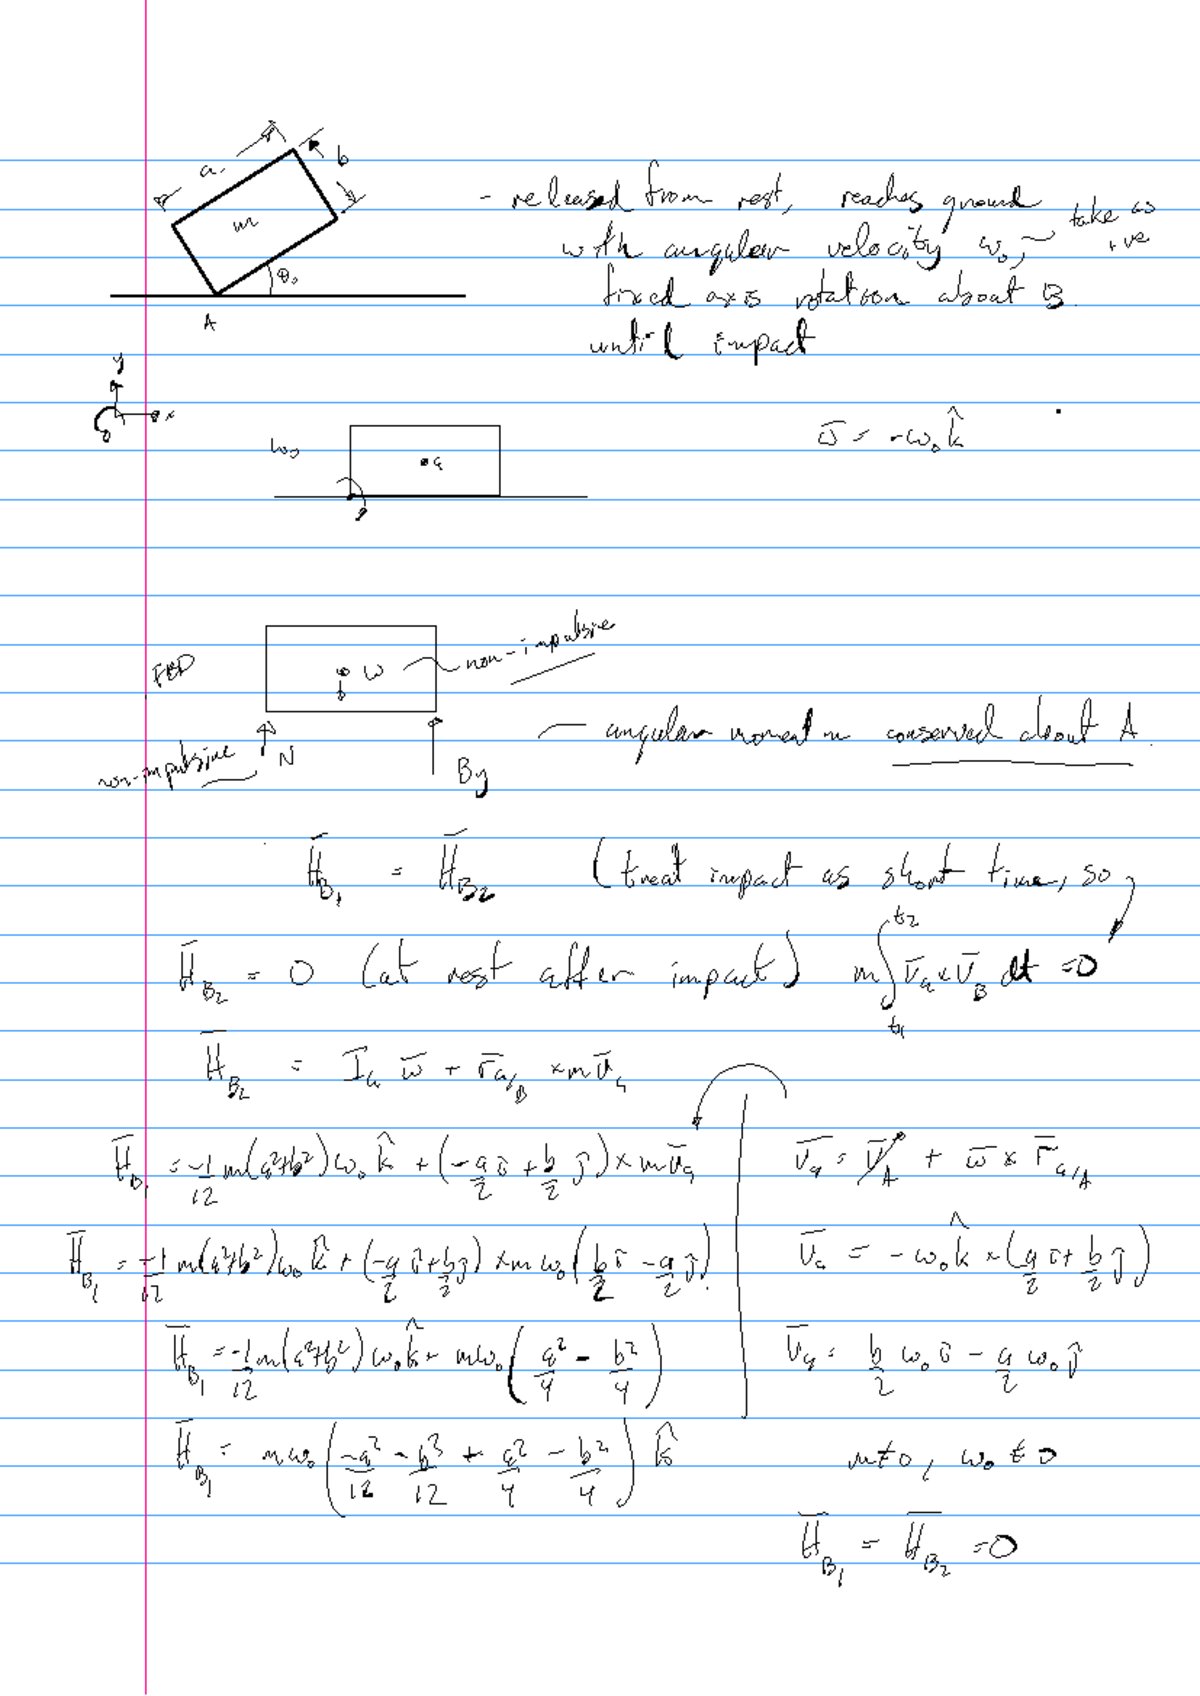 a
b
m
θ₀
A
- released from rest, reaches ground
with angular velocity ω₀, ~ take ω₀ +ve
fixed axis rotation about B
until impact
y
x
ω₀
G
ω̄ = -ω₀ k̂
FBD
W
non-impulsive
non-impulsive
N
By
— angular momentum conserved about A.
H̄_B₁ = H̄_B2 (treat impact as short time, so
H̄_B₂ = 0 (at rest after impact) m∫_{t₁}^{t₂} v̄_G × v̄_B dt = 0
H̄_B₂ = I_G ω̄ + r̄_G/B × m v̄_G
H̄_B₁ = -1/12 m(a²+b²)ω₀ k̂ + (-a/2 î + b/2 ĵ) × m v̄_G
v̄_G = v̄_A + ω̄ × r̄_G/A
H̄_B₁ = -1/12 m(a²+b²)ω₀ k̂ + (-a/2 î + b/2 ĵ) × mω₀(b/2 î - a/2 ĵ)
v̄_G = -ω₀ k̂ × (a/2 î + b/2 ĵ)
H̄_B₁ = -1/12 m(a²+b²)ω₀ k̂ + mω₀(a²/4 - b²/4)
v̄_G = b/2 ω₀ î - a/2 ω₀ ĵ
H̄_B₁ = mω₀(-a²/12 - b²/12 + a²/4 - b²/4) k̂
m≠0, ω₀ ≠ 0
H̄_B₁ = H̄_B₂ = 0